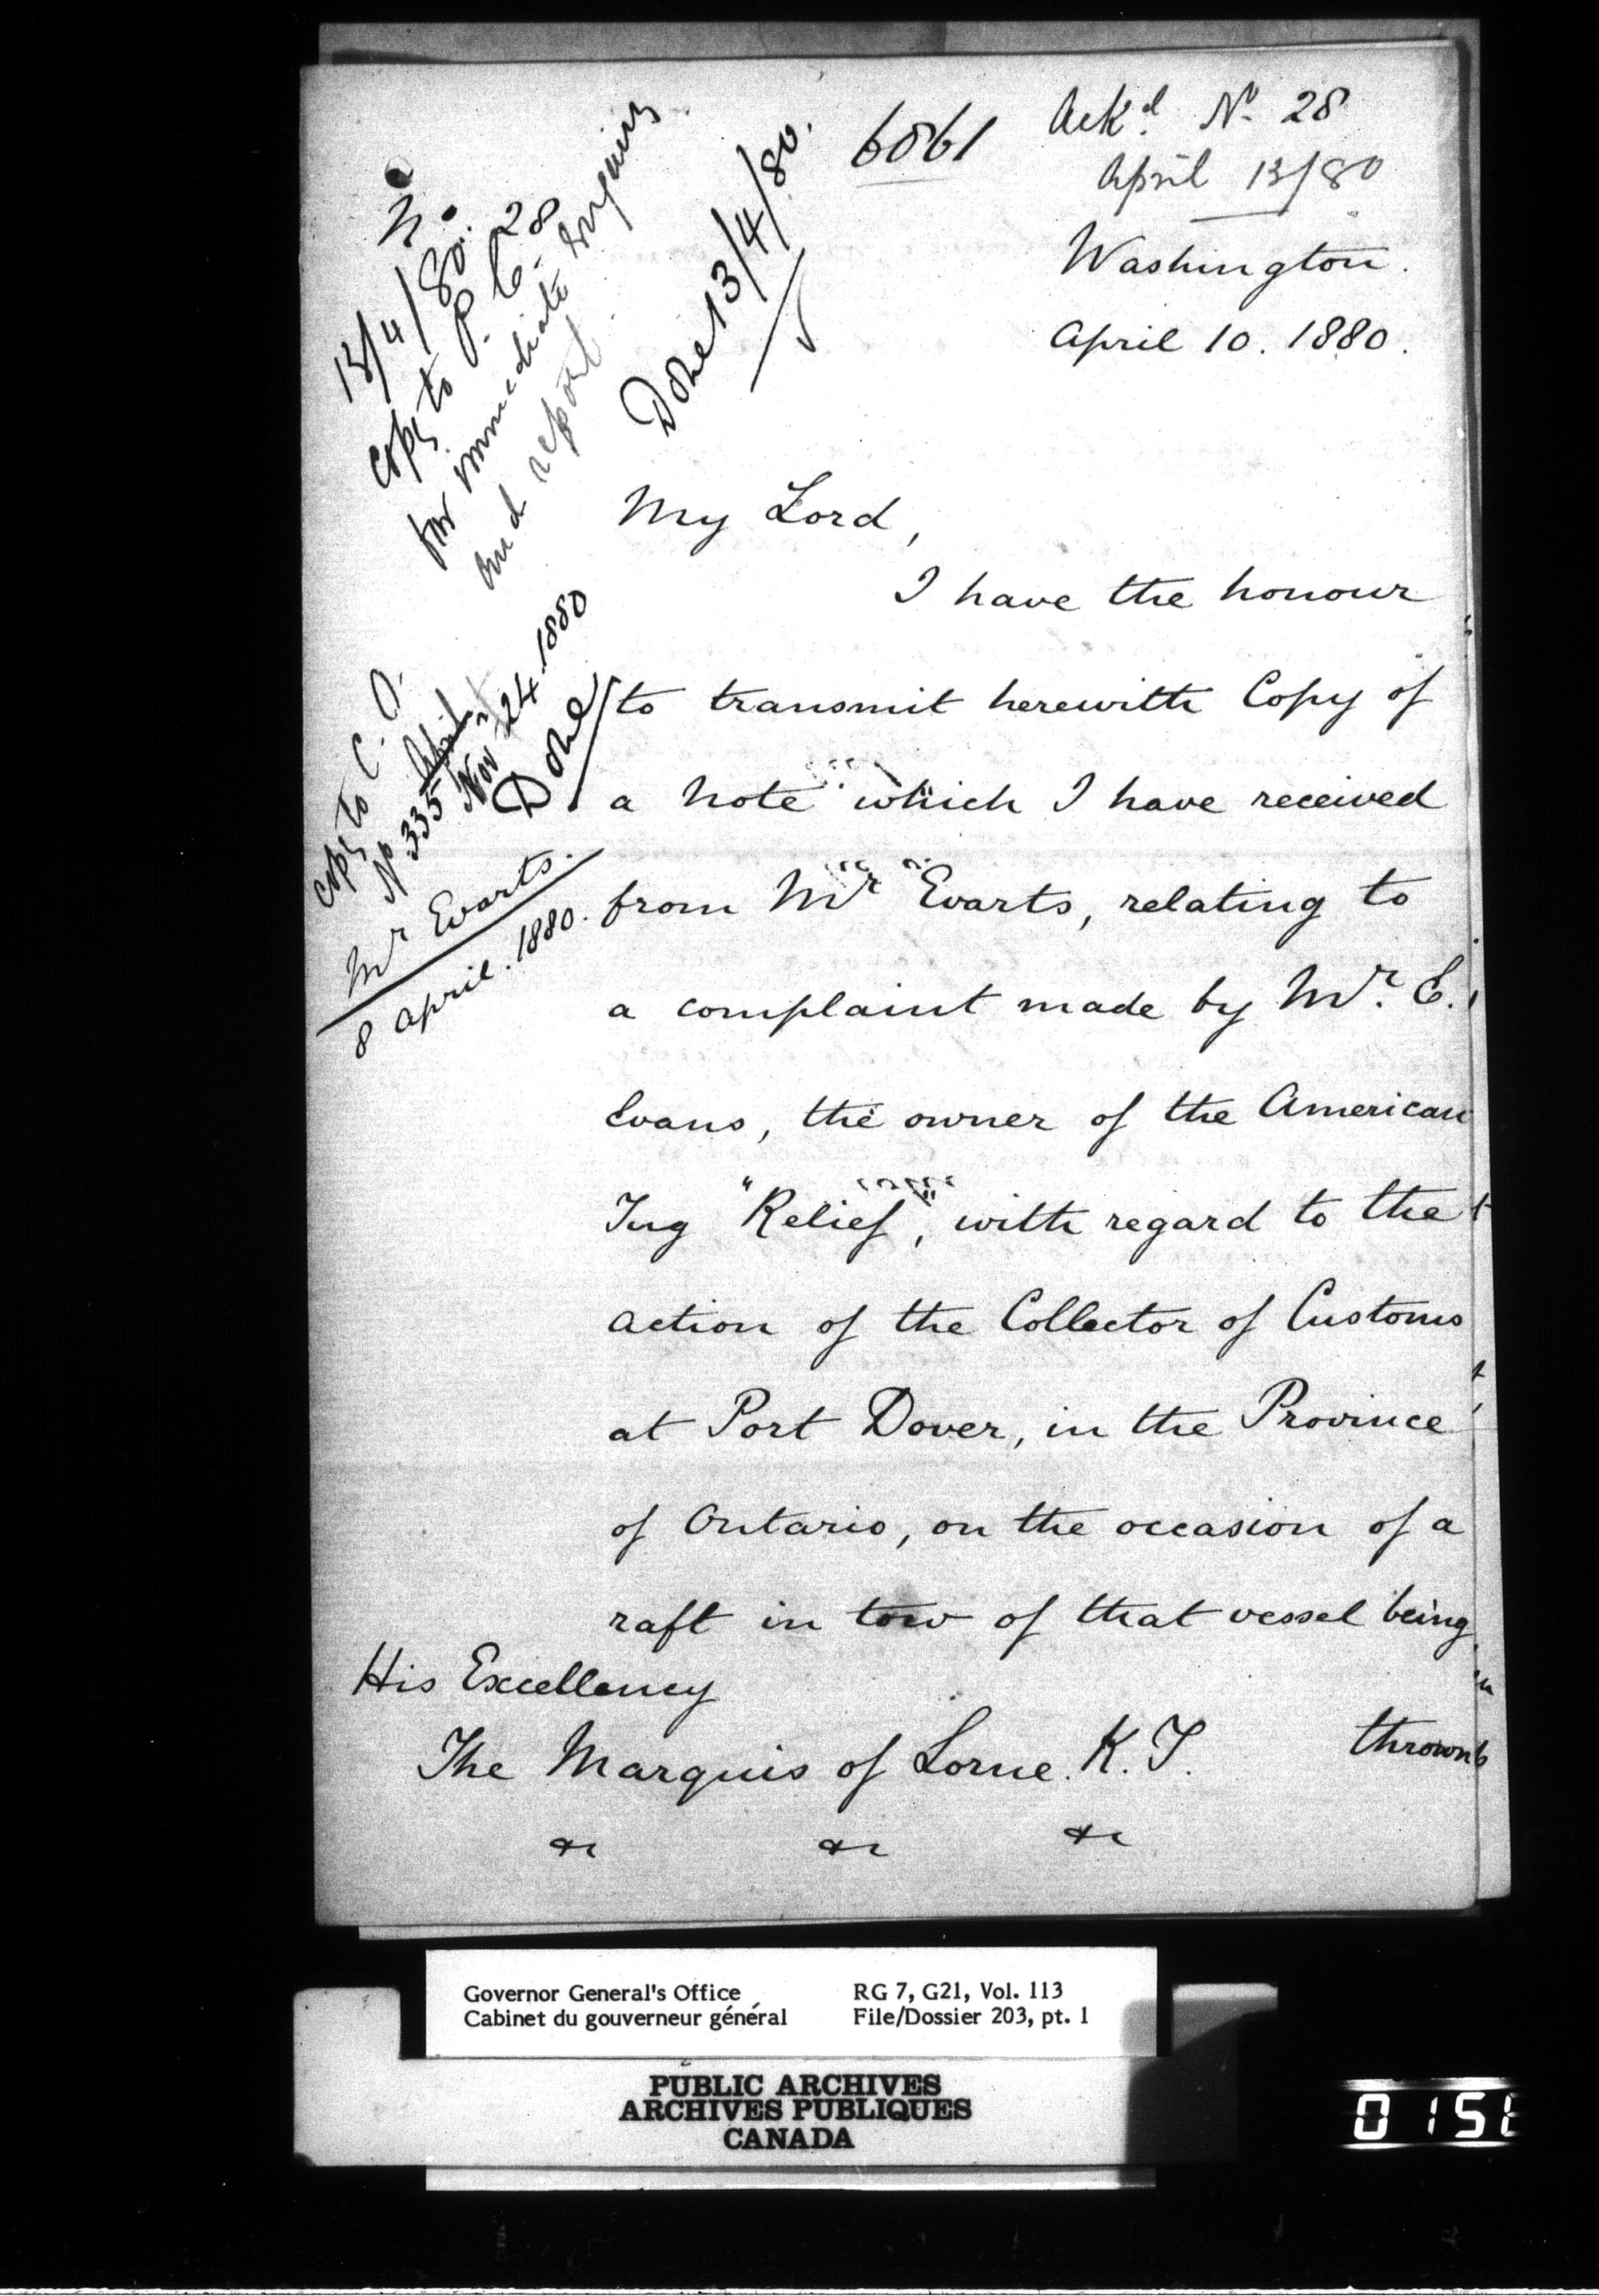 6861
Ackd. No. 28
April 13/80
Washington.
April 10. 1880.
No. 28
13/4/80.
Copy to P. C.
for immediate enquiry
and report.
Done 13/4/80.
My Lord,
I have the honour
to transmit herewith Copy of
a Note which I have received
from Mr Evarts, relating to
a complaint made by Mr. E.
Evans, the owner of the American
Tug "Relief", with regard to the
action of the Collector of Customs
at Port Dover, in the Province
of Ontario, on the occasion of a
raft in tow of that vessel being
thrown
Copy to C. O.
No 335 Nov 24. 1880
Done
Mr Evarts.
8 April. 1880.
His Excellency
The Marquis of Lorne. K.T.
&c &c &c
Governor General's Office
Cabinet du gouverneur général
RG 7, G21, Vol. 113
File/Dossier 203, pt. 1
PUBLIC ARCHIVES
ARCHIVES PUBLIQUES
CANADA
0151